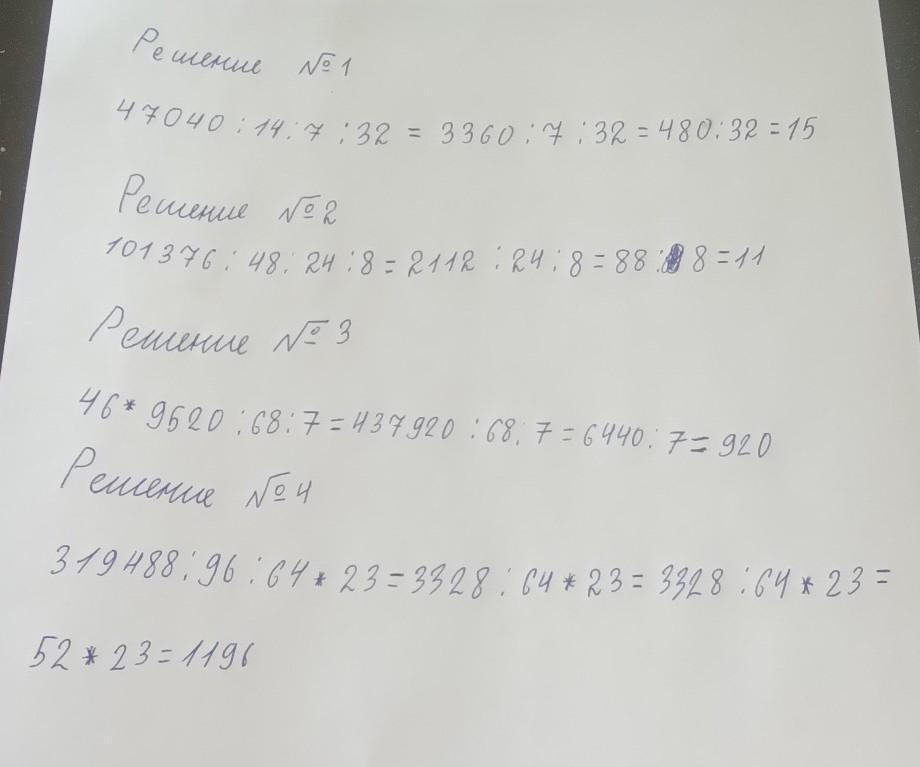 Решение №1
47040 : 14 : 7 : 32 = 3360 : 7 : 32 = 480 : 32 = 15
Решение №2
101376 : 48 : 24 : 8 = 2112 : 24 : 8 = 88 : 8 = 11
Решение №3
46 * 9520 : 68 : 7 = 437920 : 68 : 7 = 6440 : 7 = 920
Решение №4
319488 : 96 : 64 * 23 = 3328 : 64 * 23 = 3328 : 64 * 23 =
52 * 23 = 1196